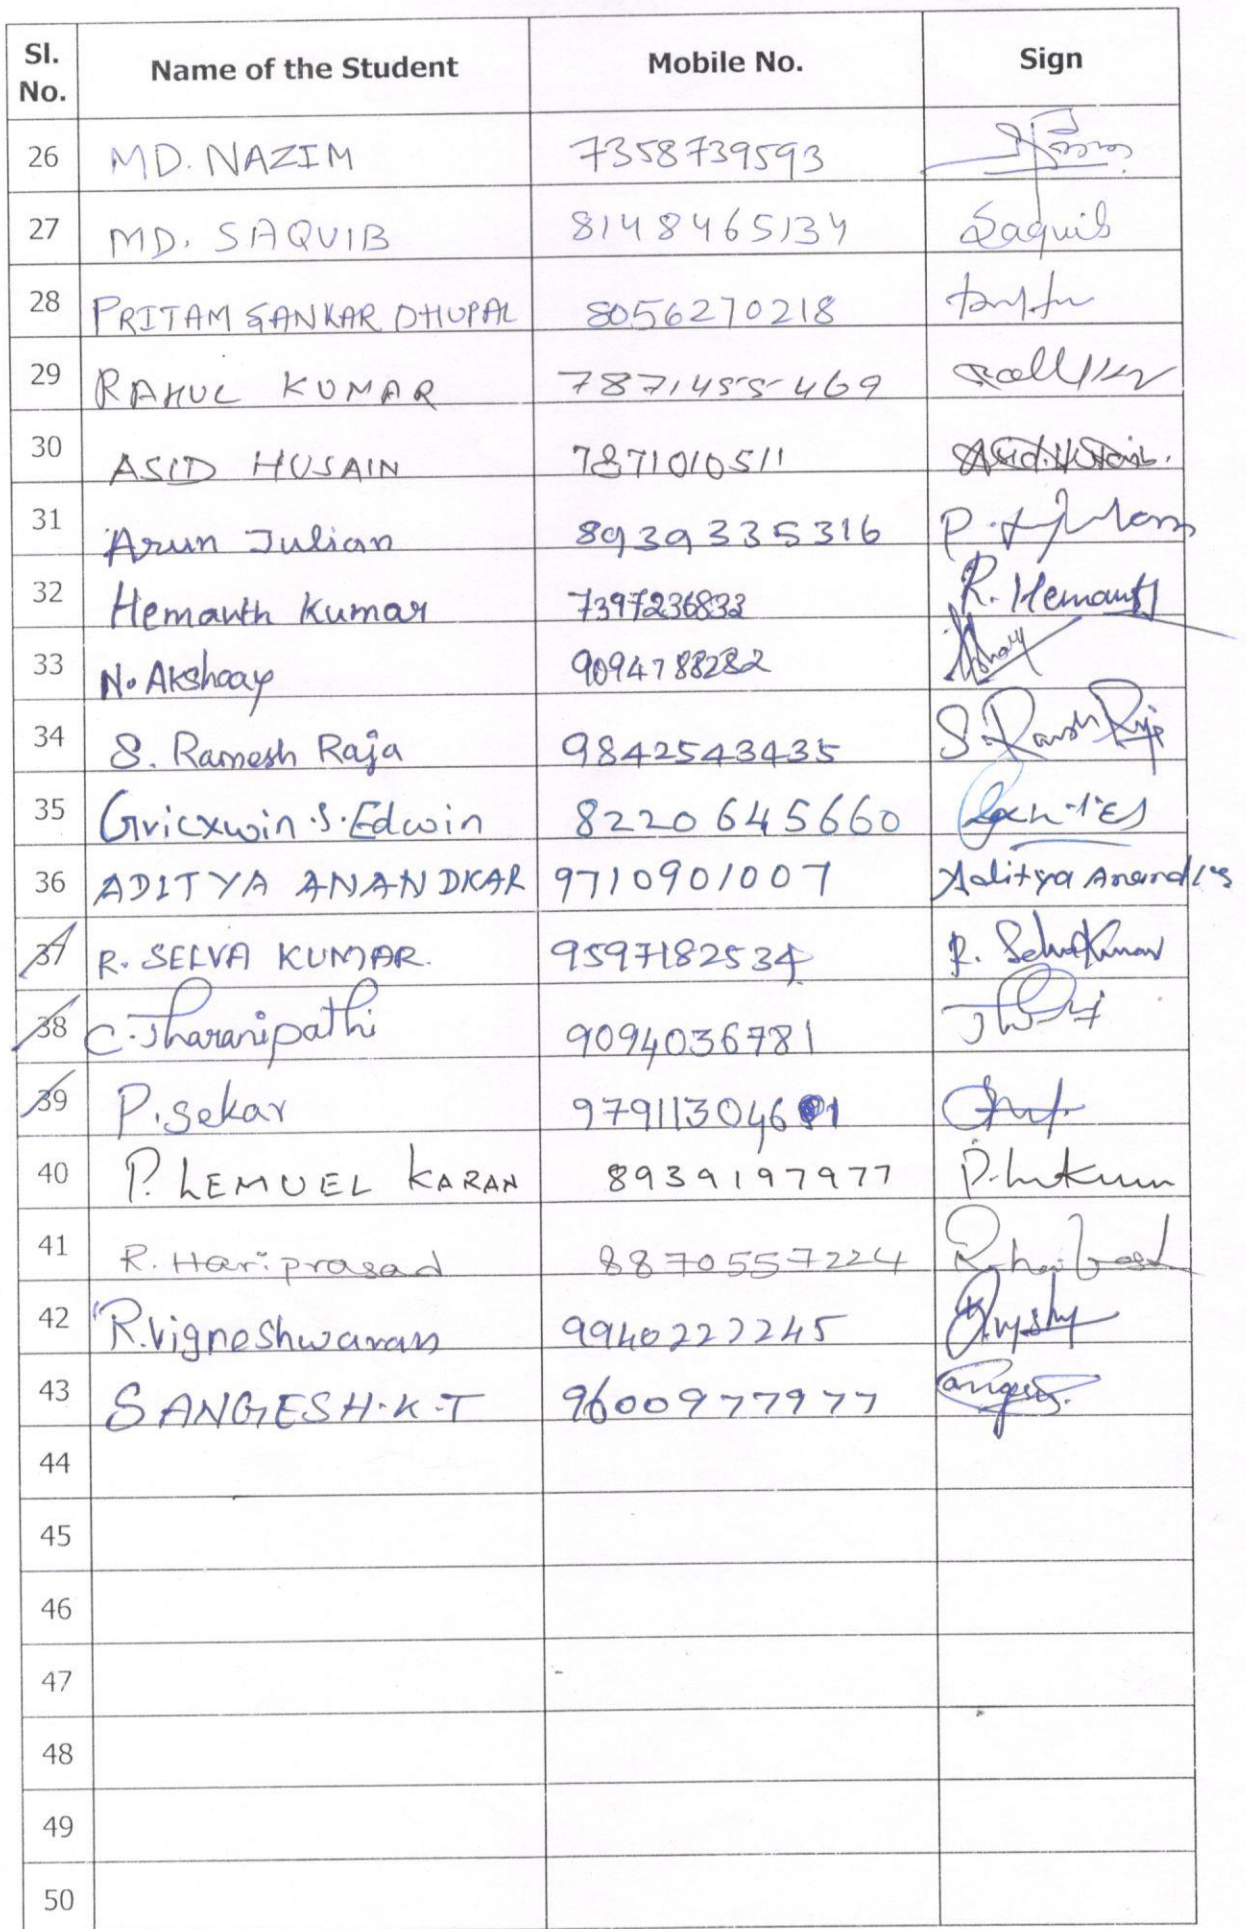 Sl. No. Name of the Student Mobile No. Sign
26 MD. NAZIM 7358739593
27 MD. SAQUIB 8148465134 Saquib
28 PRITAM SANKAR DHUPAL 8056270218
29 RAHUL KUMAR 7871455469
30 ASID HUSAIN 7871010511 Asid.Husain.
31 Arun Julian 8939335316
32 Hemanth Kumar 7397236832 R. Hemanth
33 N. Akshaay 9094788282
34 S. Ramesh Raja 9842543435 S. Ramesh Raja
35 Gricxwin.S.Edwin 8220645660
36 ADITYA ANANDKAR 9710901007 Aditya Anand
37 R. SELVA KUMAR. 9597182534 R. SelvaKumar
38 C. Tharanipathi 9094036781
39 P. Sekar 9791130461
40 P. LEMUEL KARAN 8939197977
41 R. Hariprasad 8870557224 R. hariprasad
42 R. Vigneshwaran 9940222245
43 SANGESH.K.T 9600977977
44
45
46
47
48
49
50